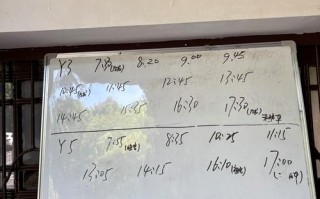 Y3 7:30 8:20 9:00 9:45
10:45 11:45 12:45 13:45
14:45 15:35 16:30 17:30
Y5 7:55 8:35 10:25 11:15
13:05 14:15 16:10 17:00